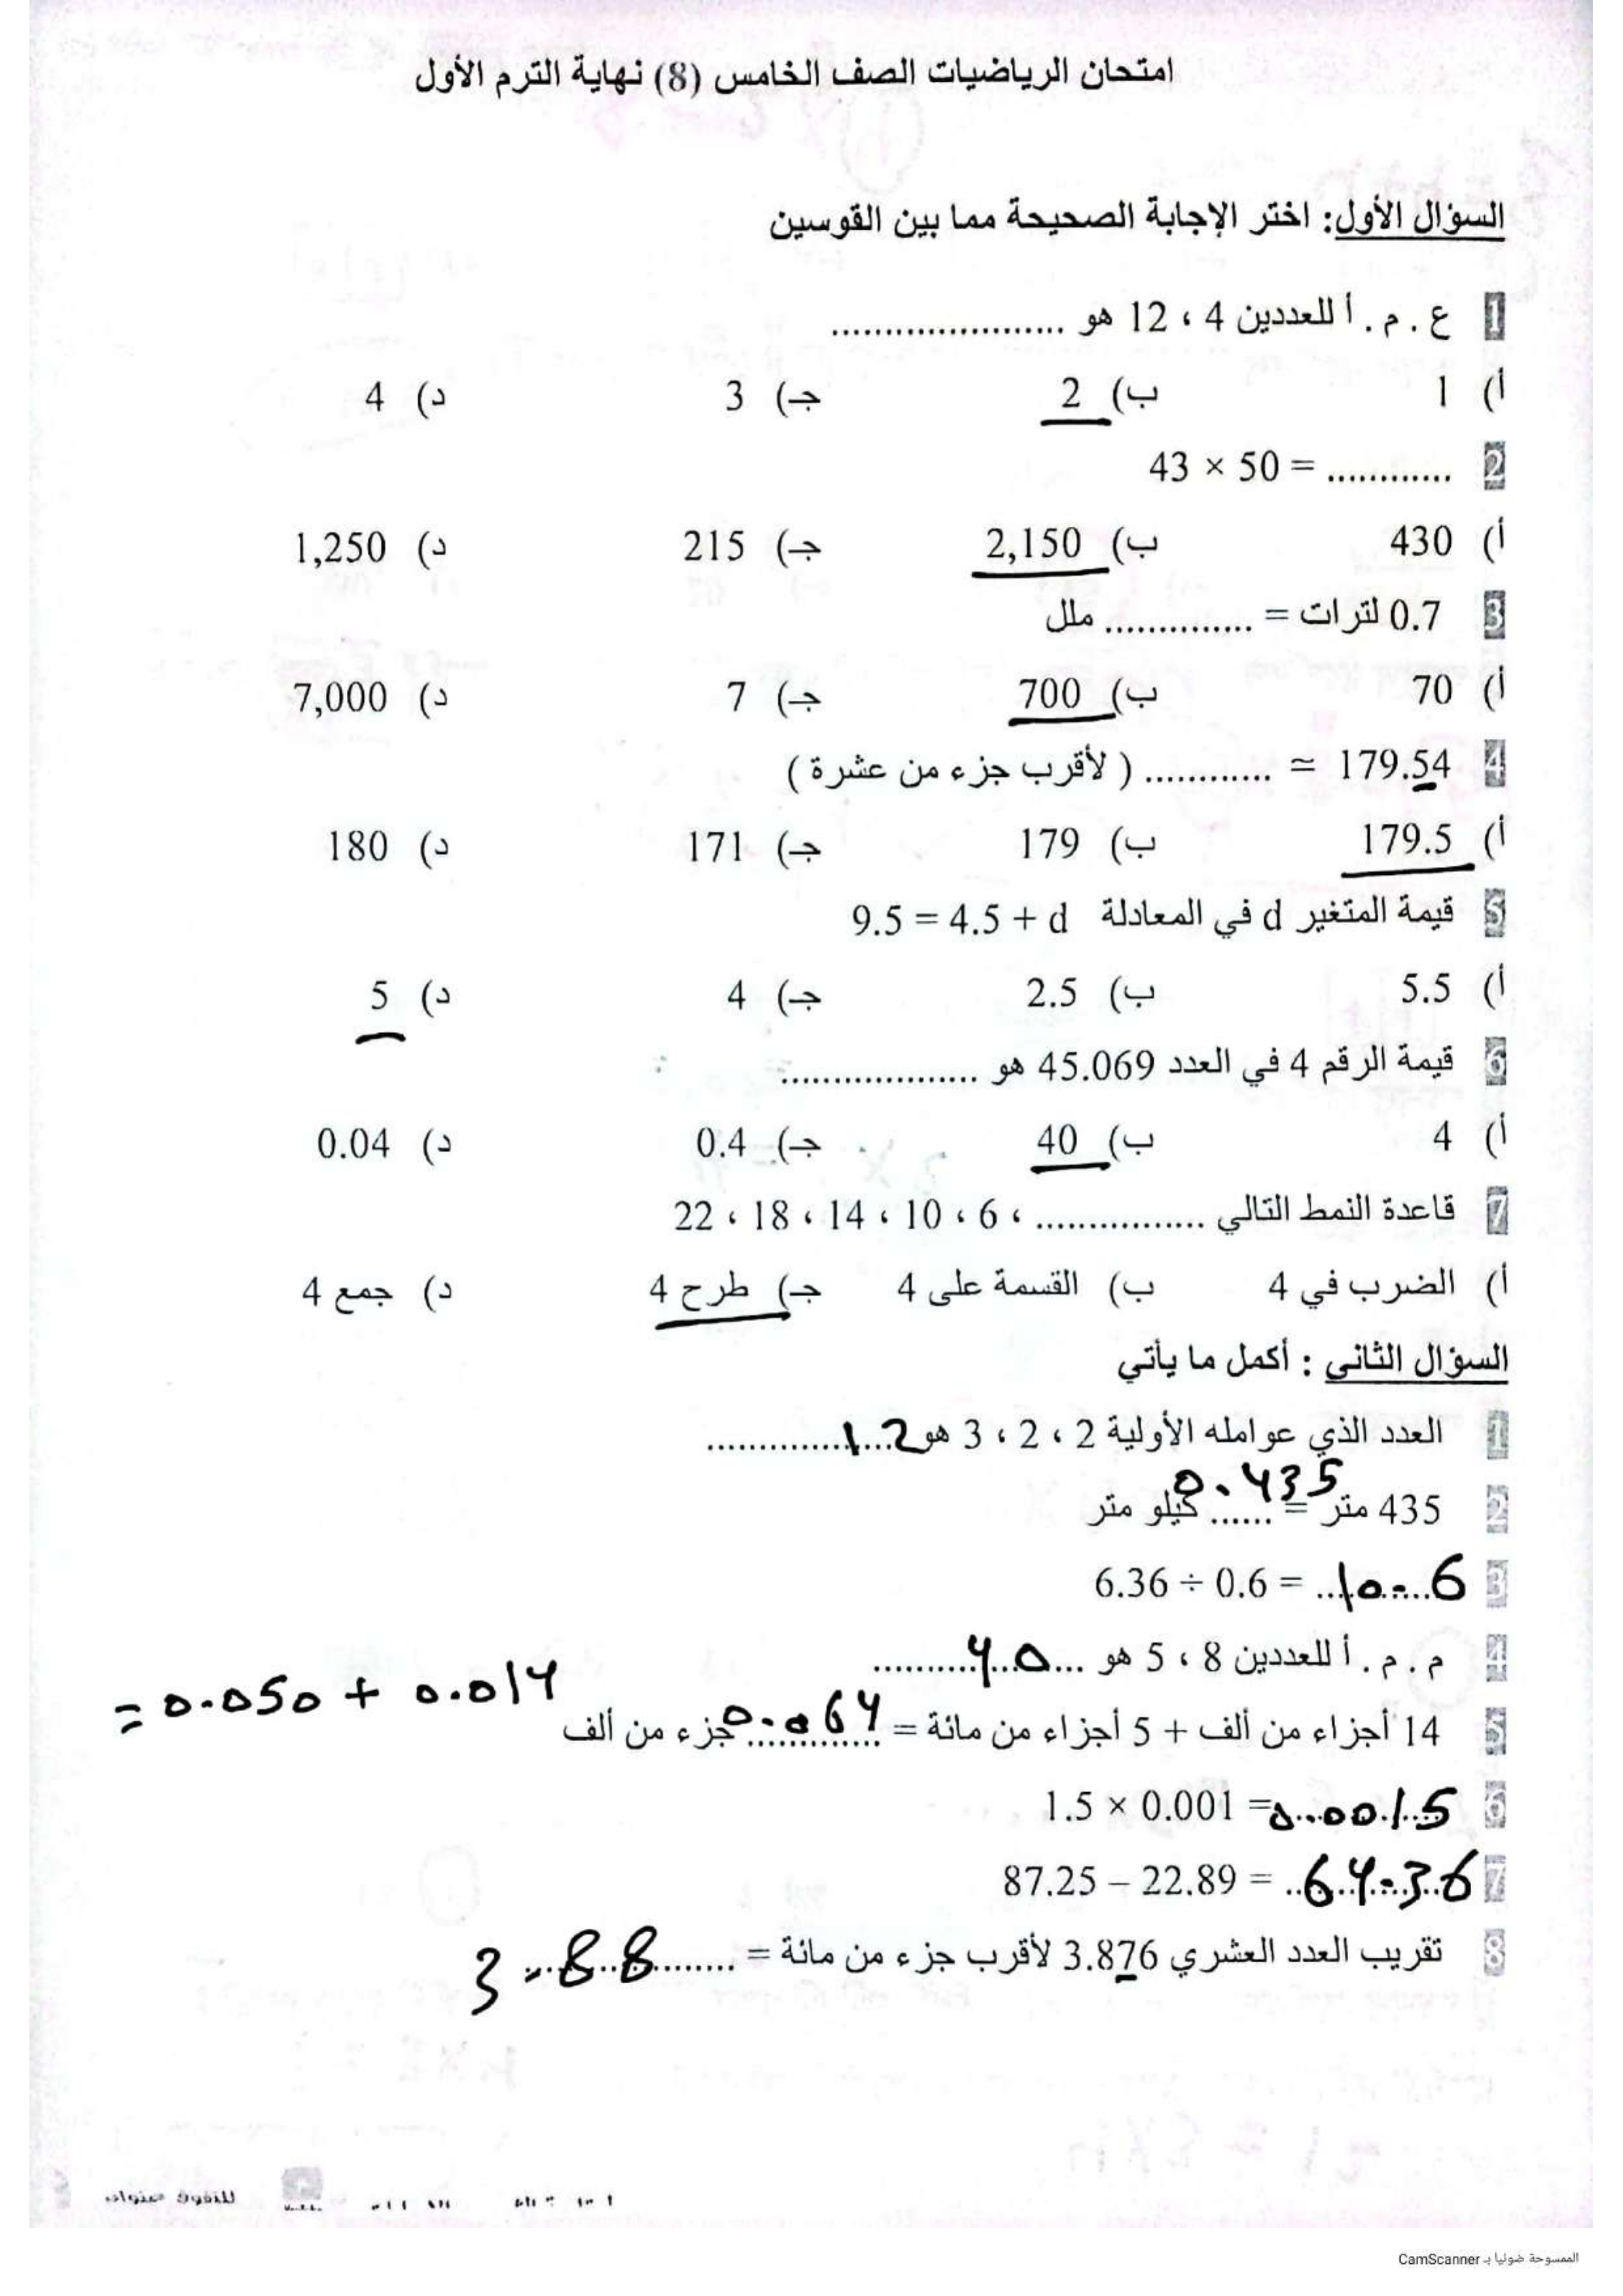 امتحان الرياضيات الصف الخامس (8) نهاية الترم الأول
السؤال الأول: اختر الإجابة الصحيحة مما بين القوسين
1 ع . م . أ للعددين 4 ، 12 هو ......................
أ) 1 ب) 2 جـ) 3 د) 4
2 43 × 50 = ............
أ) 430 ب) 2,150 جـ) 215 د) 1,250
3 0.7 لترات = .............. ملل
أ) 70 ب) 700 جـ) 7 د) 7,000
4 179.54 ≃ ............ ( لأقرب جزء من عشرة )
أ) 179.5 ب) 179 جـ) 171 د) 180
5 قيمة المتغير d في المعادلة 9.5 = 4.5 + d
أ) 5.5 ب) 2.5 جـ) 4 د) 5
6 قيمة الرقم 4 في العدد 45.069 هو ...................
أ) 4 ب) 40 جـ) 0.4 د) 0.04
7 قاعدة النمط التالي ................ ، 22 ، 18 ، 14 ، 10 ، 6
أ) الضرب في 4 ب) القسمة على 4 جـ) طرح 4 د) جمع 4
السؤال الثاني : أكمل ما يأتي
1 العدد الذي عوامله الأولية 2 ، 2 ، 3 هو 12
2 435 متر = 0.435 كيلو متر
3 6.36 ÷ 0.6 = 10.6
4 م . م . أ للعددين 8 ، 5 هو 40
= 0.050 + 0.014
5 14 أجزاء من ألف + 5 أجزاء من مائة = 0.064 جزء من ألف
6 1.5 × 0.001 = 0.0015
7 87.25 – 22.89 = 64.36
8 تقريب العدد العشري 3.876 لأقرب جزء من مائة = 3.88
الممسوحة ضوئيا بـ CamScanner